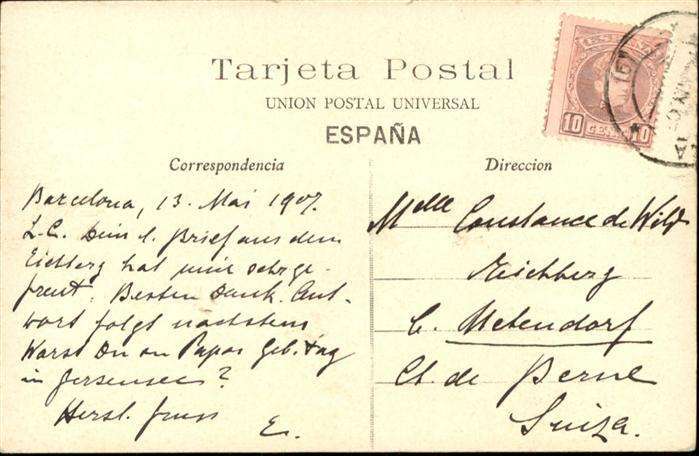 Tarjeta Postal
UNION POSTAL UNIVERSAL
ESPAÑA
Correspondencia
Barcelona, 13. Mai 1907.
L. C. Dein l. Brief aus dem
Eichberg hat mich sehr ge-
freut. Besten Dank. Ant-
wort folgt nächstens
Warst Du an Papas Geb. tag
in Gerzensee?
Herzl. Gruss
E.
Direccion
Melle Constance de Wild
Eichberg
b. Uetendorf
Ct. de Berne
Suiza.
10 CENT. 10